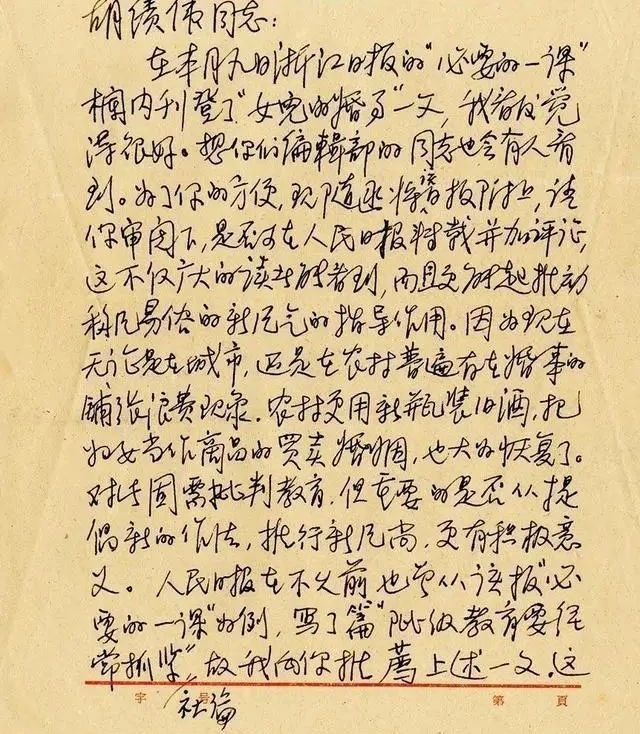 胡绩伟同志：
在本月九日浙江日报的"必要的一课"
栏内刊登了"女儿的婚事"一文，我看后觉
得很好。想你们编辑部的同志也会有人看
到。为了你的方便，现随函将该报附上，请
你审阅下，是否可在人民日报转载并加评论，
这不仅广大的读者能看到，而且更能起推动
移风易俗的新风气的指导作用。因为现在
无论是在城市，还是在农村普遍存在婚事的
铺张浪费现象。农村更用新瓶装旧酒，把
妇女当作商品的买卖婚姻，也大为恢复了。
对此固需批判教育，但重要的是从提
倡新的作法，推行新风尚，更有积极意
义。人民日报在不久前也曾从该报"必
要的一课"为例，写了篇"阶级教育要经
常抓紧"故我向你推荐上述一文。这
社论
字号 第 頁